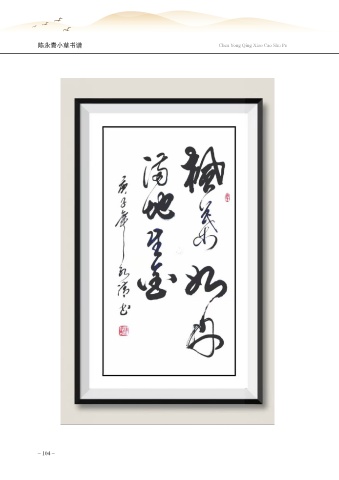 陈永青小草书谱
Chen Yong Qing Xiao Cao Shu Pu
枫叶如丹
满地生金
庚子年永青书
- 104 -